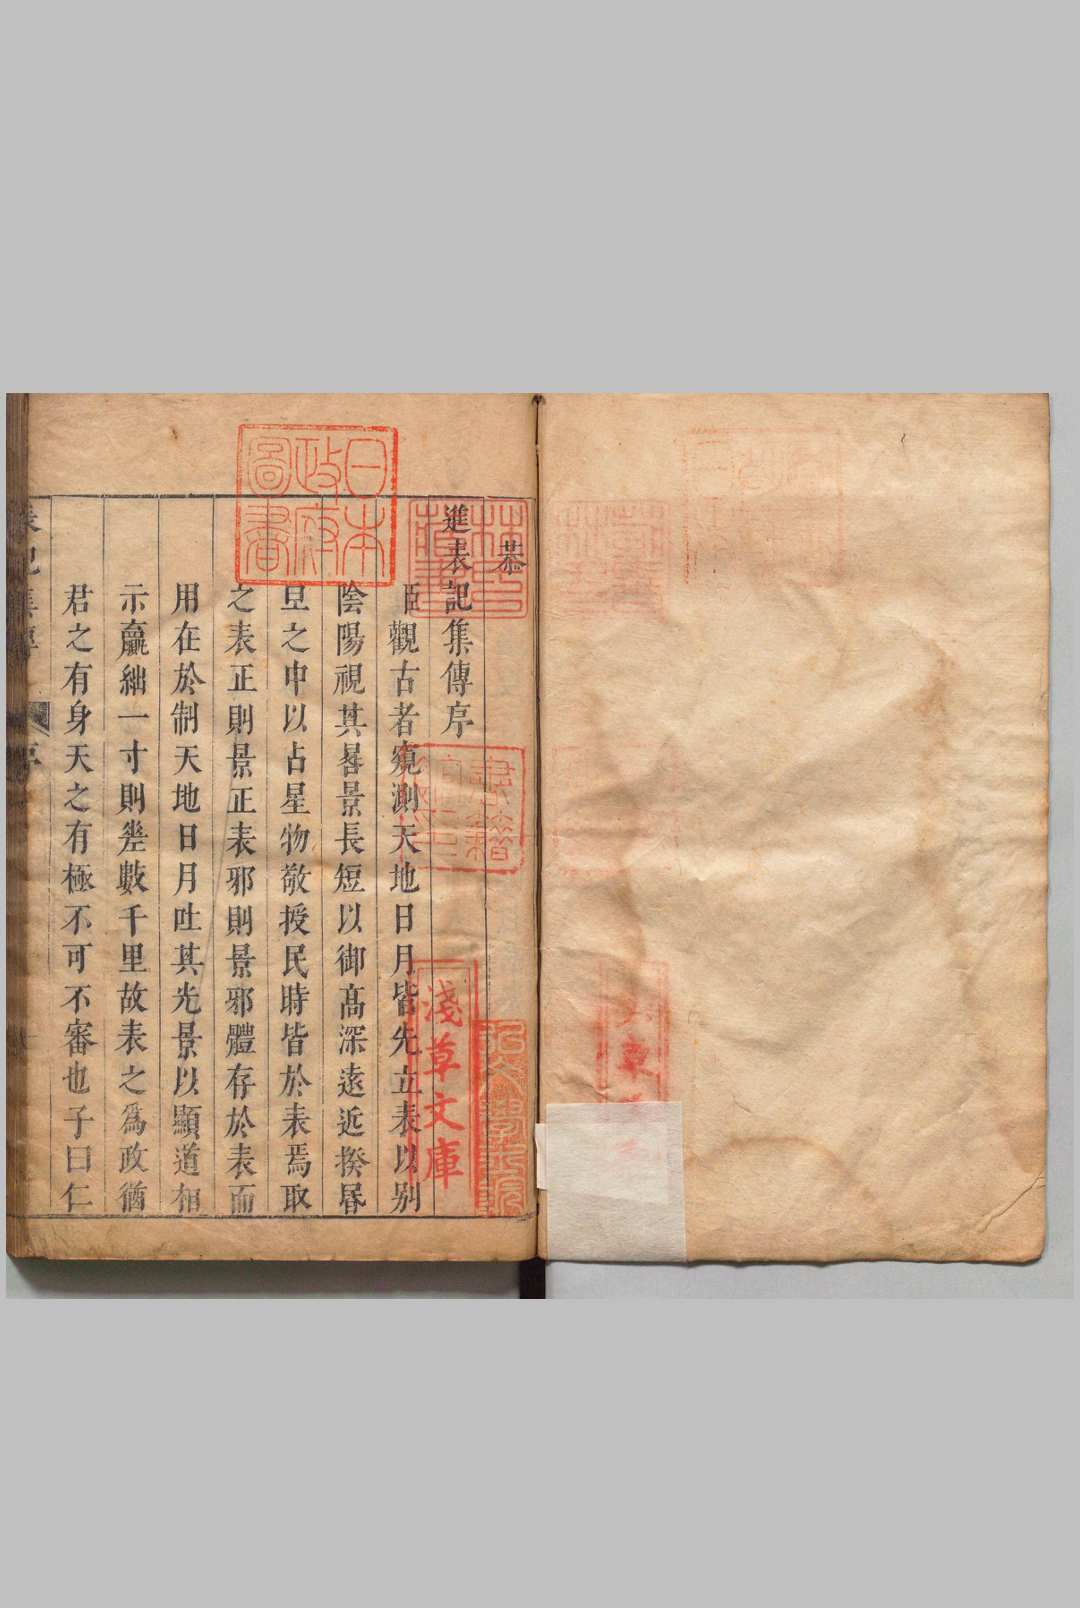 恭
進表記集傳序
臣觀古者窺測天地日月皆先立表以别
陰陽視其晷景長短以御髙深遠近揆昬
旦之中以占星物敬授民時皆於表焉取
之表正則景正表邪則景邪體存於表而
用在於制天地日月吐其光景以顯道相
示贏絀一寸則差數千里故表之爲政猶
君之有身天之有極不可不審也子曰仁
表記集傳
序
日本
政府
圖書
淺草文庫
林氏
藏書